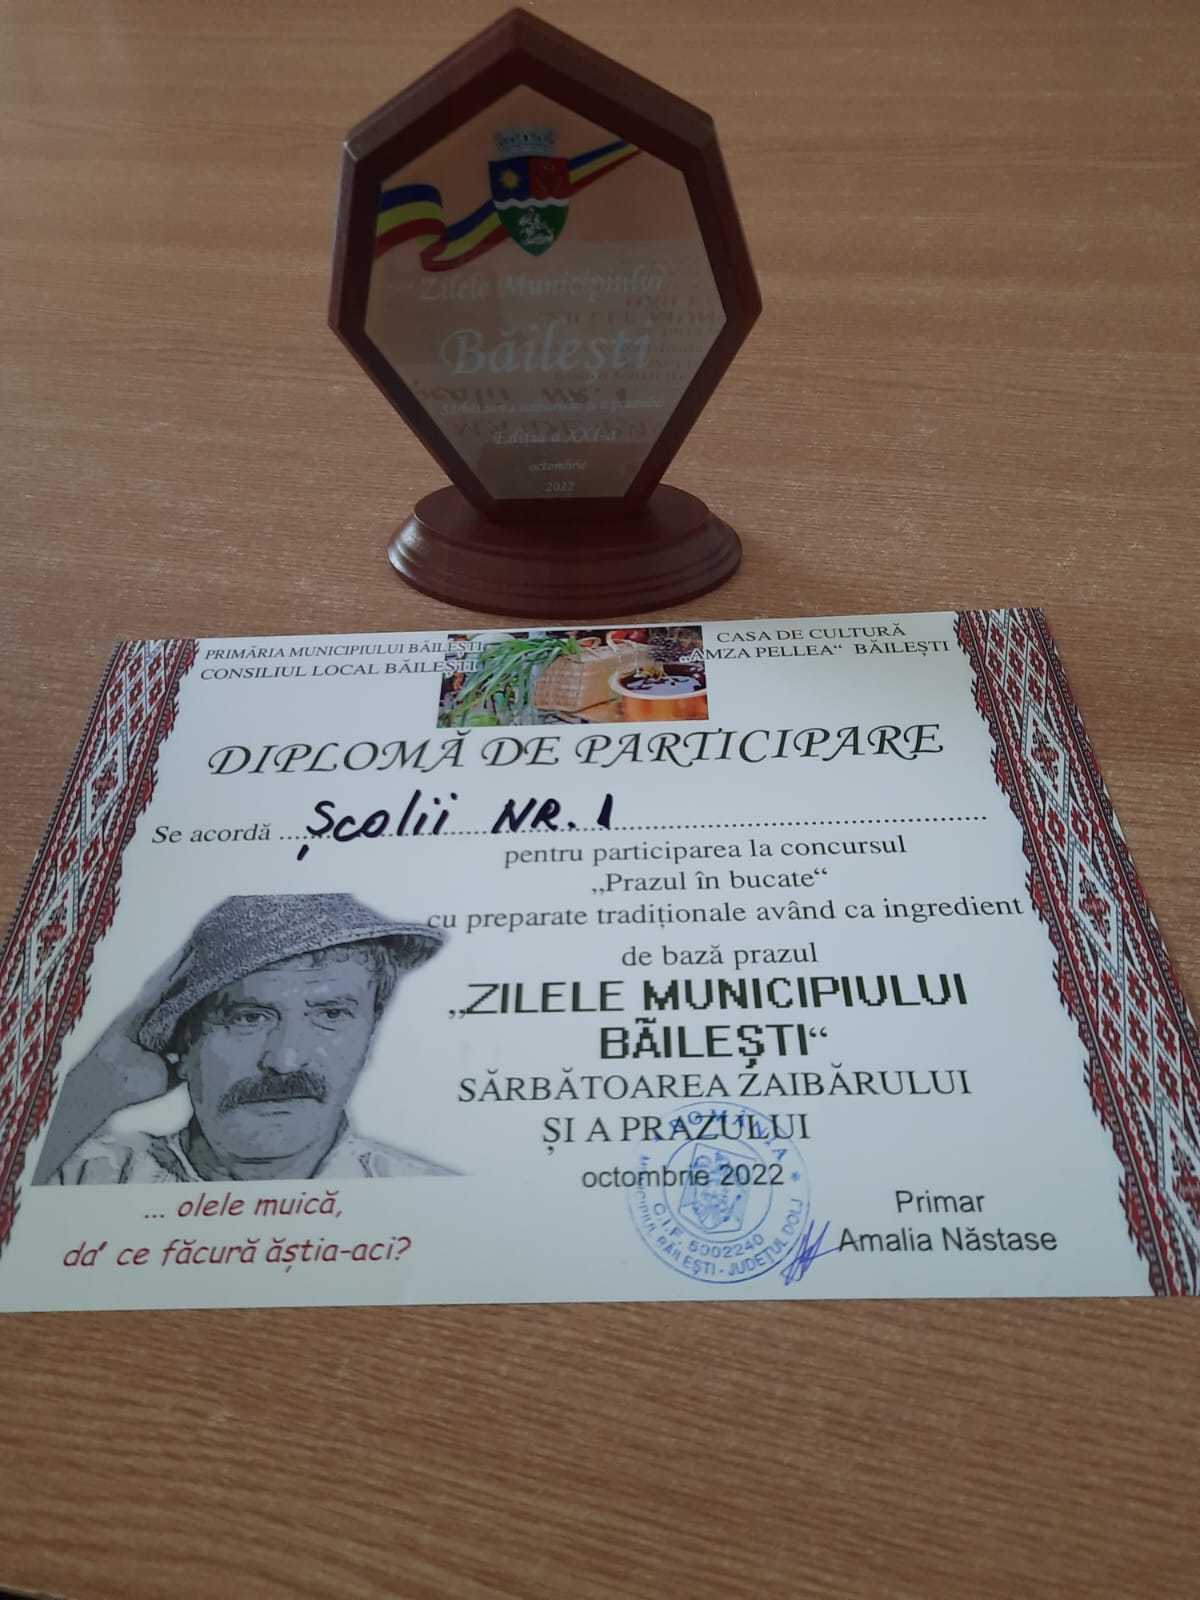 Zilele Municipiului
Băilești
Sărbătoarea zaibărului și a prazului
Ediția a XXI-a
octombrie
2022
PRIMĂRIA MUNICIPIULUI BĂILEȘTI
CONSILIUL LOCAL BĂILEȘTI
CASA DE CULTURĂ
„AMZA PELLEA“ BĂILEȘTI
DIPLOMĂ DE PARTICIPARE
Se acordă ....Școlii NR. 1..............................
pentru participarea la concursul
„Prazul în bucate“
cu preparate tradiționale având ca ingredient
de bază prazul
„ZILELE MUNICIPIULUI
BĂILEȘTI“
SĂRBĂTOAREA ZAIBĂRULUI
ȘI A PRAZULUI
octombrie 2022
... olele muică,
da' ce făcură ăștia-aci?
Primar
Amalia Năstase
ROMÂNIA
MUNICIPIUL BĂILEȘTI - JUDEȚUL DOLJ
C.I.F. 5002240